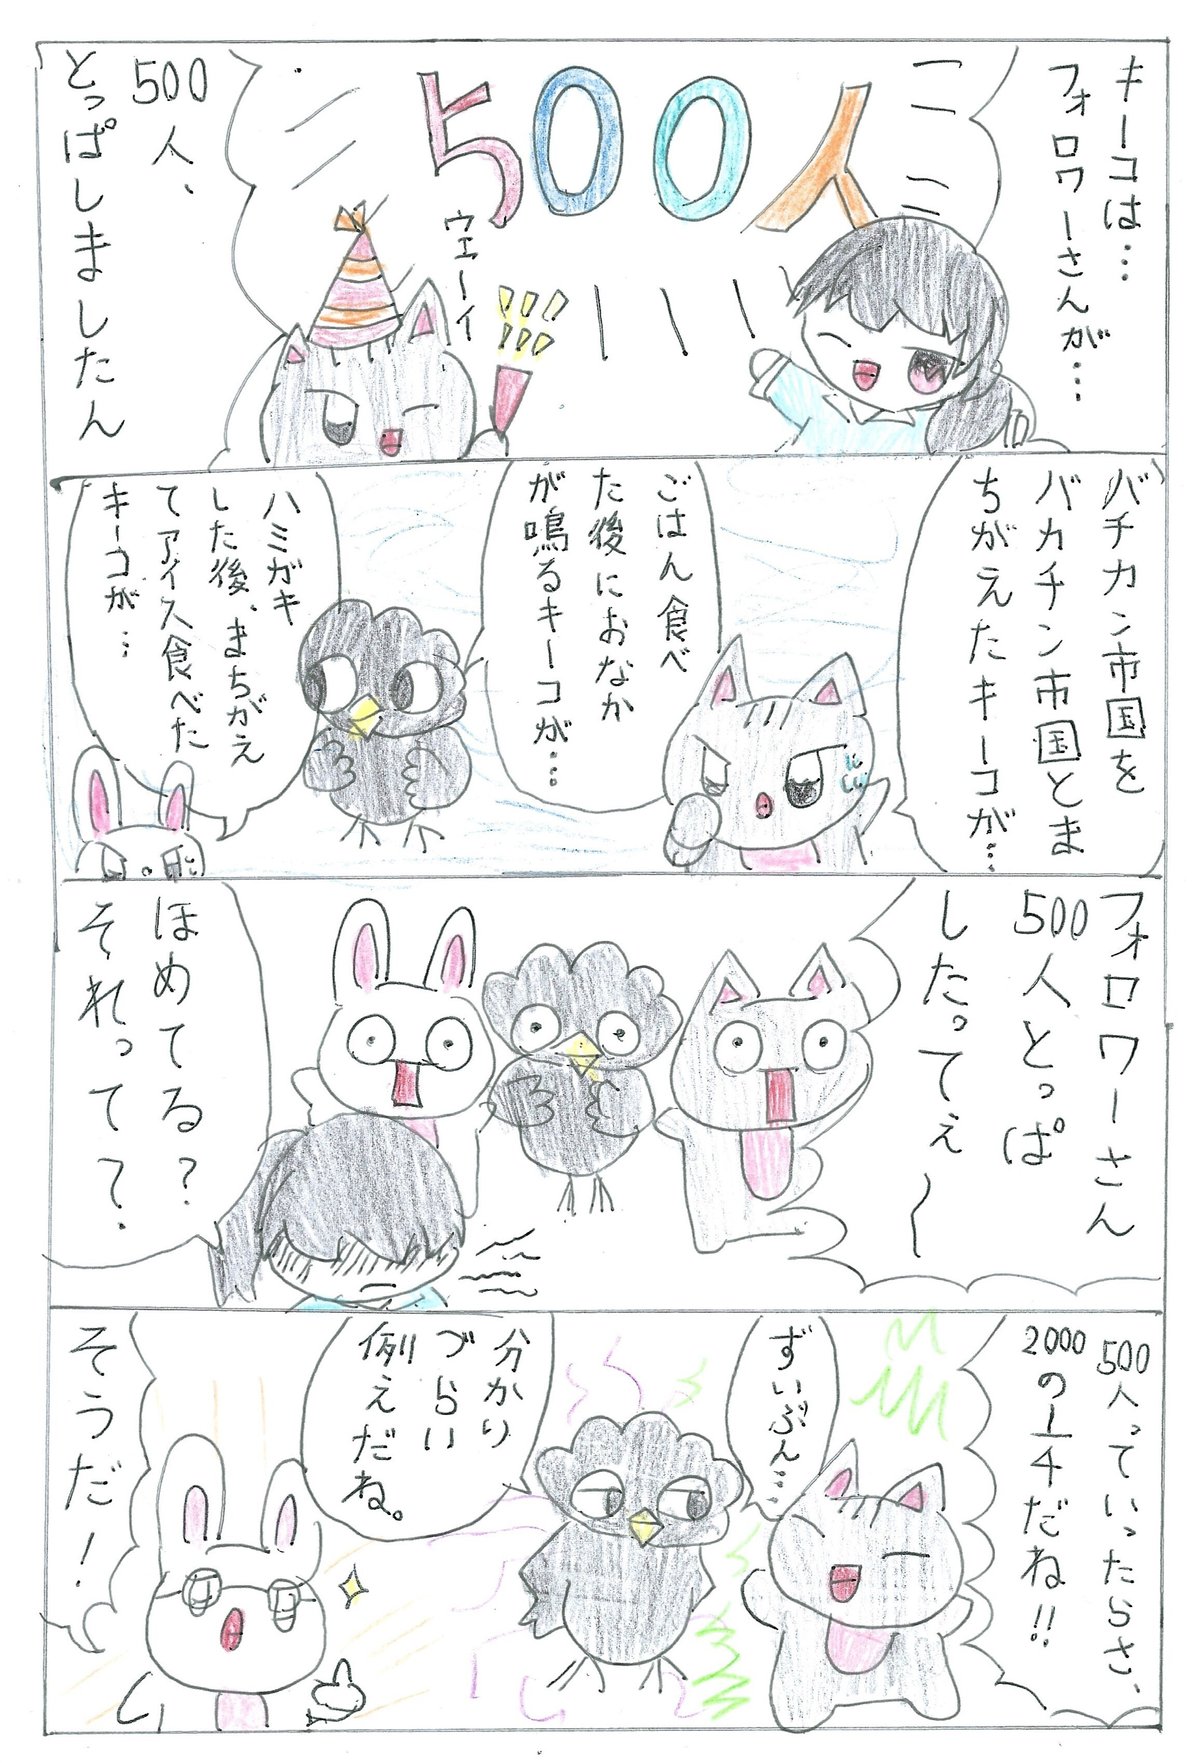 キーコは…
フォロワーさんが…
500人
ウェーイ
500
人、
とっぱしましたん
バチカン市国を
バカチン市国とま
ちがえたキーコが…
ごはん食べ
た後におなか
が鳴るキーコが…
ハミガキ
した後、まちがえ
てアイス食べた
キーコが…
フォロワーさん
500人とっぱ
したってぇ〜
ほめてる?
それって?
500人っていったらさ、
2000の
ずいぶん…
分かり
づらい
例えだね。
そうだ!